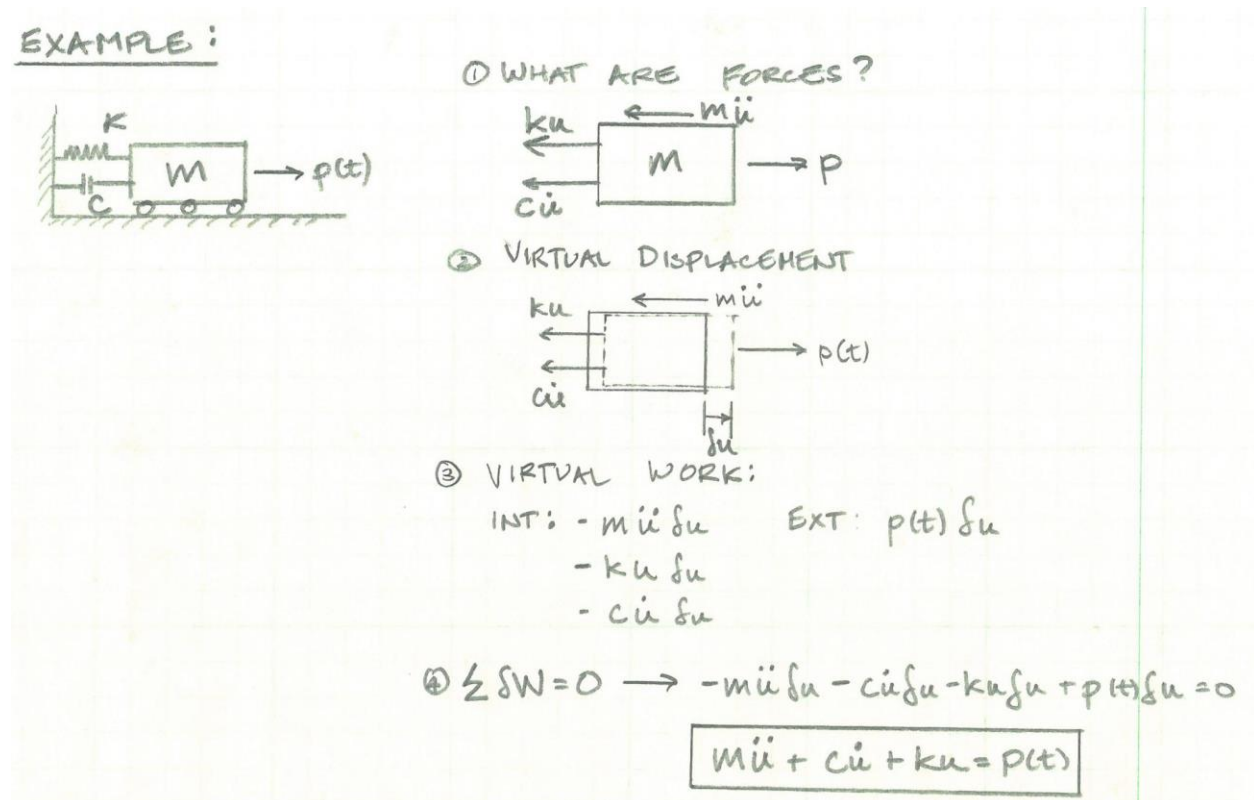 EXAMPLE:
K
M
p(t)
C
① WHAT ARE FORCES?
ku
mü
M
p
cu̇
② VIRTUAL DISPLACEMENT
ku
mü
p(t)
cu̇
δu
③ VIRTUAL WORK:
INT: - mü δu EXT: p(t) δu
- ku δu
- cu̇ δu
④ Σ δW = 0 → -müδu - cu̇δu - kuδu + p(t)δu = 0
mü + cu̇ + ku = p(t)